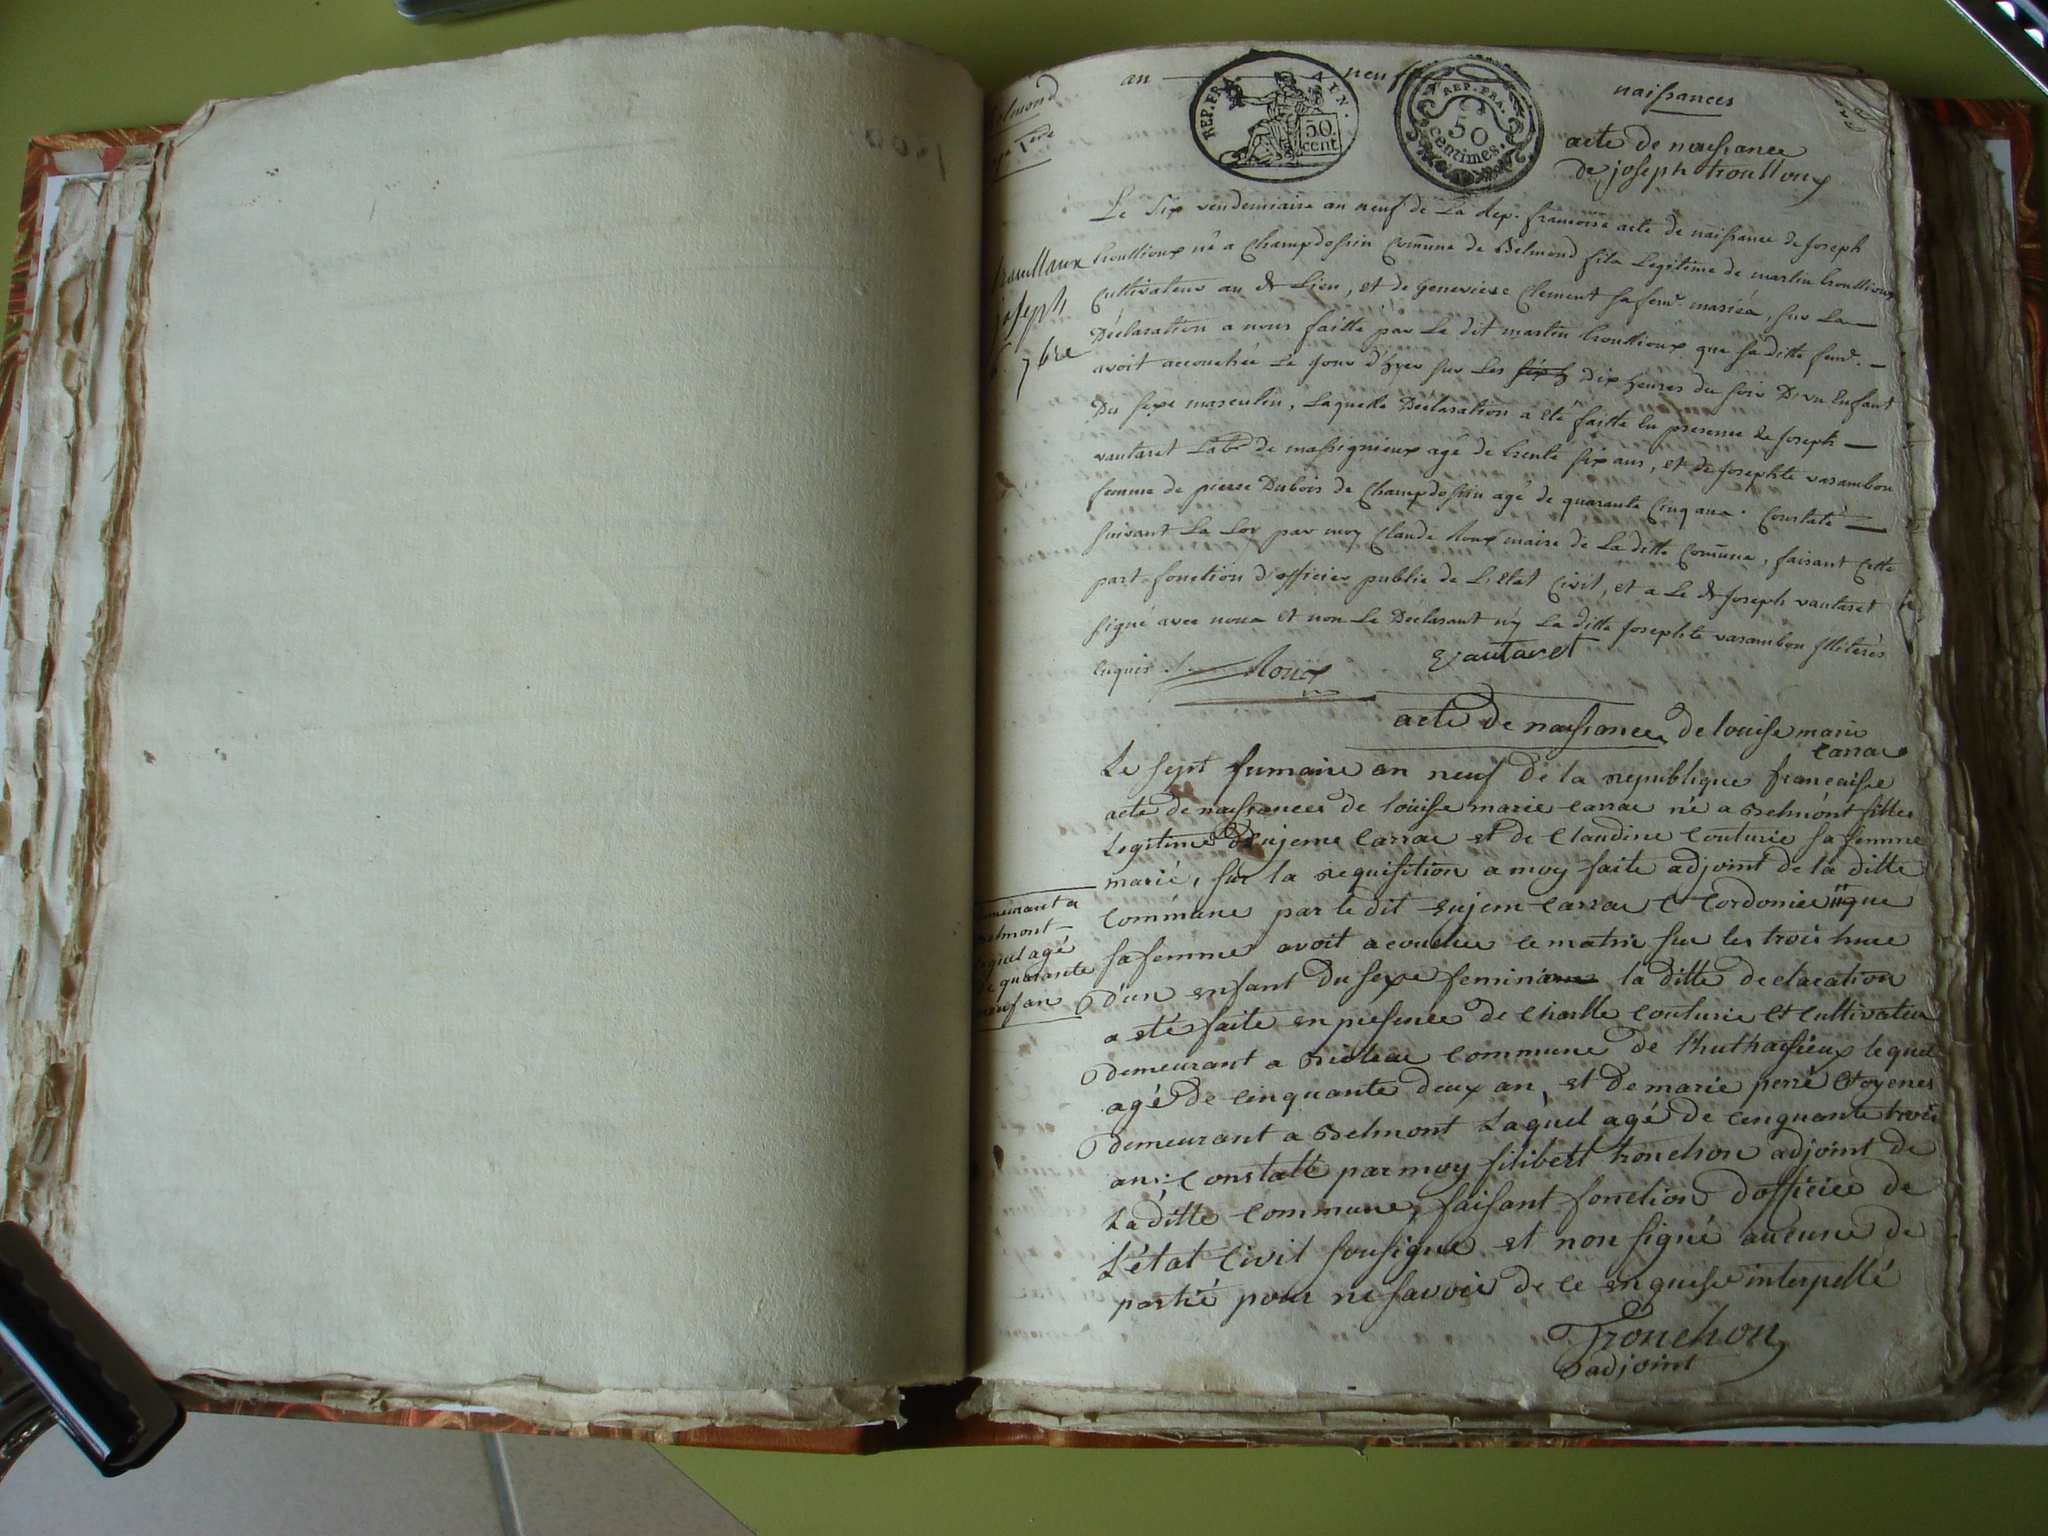 an neuf
REP. FRA
50 cent
REP. FRA.
50
centimes.
naissances
acte de naissance
de joseph troullioux
Le Six vendemiaire an neuf de La Rep. francoise acte de naissance de Joseph
troullioux né a Champdossin Commune de Belmond fils Legitime de martin troullioux
Cultivateur au dt Lieu, et de genevieve Clement sa feme. mariés, sur La
Déclaration a nous faitte par Le dit martin troullioux que sa ditte feme.
avoit accouchée Le jour d'hyer sur Les dix heures du soir D'un Enfant
Du sexe masculin, Laquelle Déclaration a été faitte En presence de Joseph
vautaret Labr de massignieux agé de trente six ans, et de Josephte varambon
femme de pierre Dubois de Champdossin agé de quarante Cinq ans. Constaté
suivant La Loy par moy Claude Roux maire de La ditte Commune, faisant Cette
part fonction d'officier public de L'Etat Civil, et a Le dt Joseph vautaret
signé avec nous et non Le Déclarant n'y La ditte Josephte varambon Illiterés
Enquis
Roux
Vautaret
trouillaux
joseph
6. 7bre
acte de naissance de louise marie
carrac
Le sept fumaire an neuf de la republique francaisse
acte de naissances de louisse marie carrac né a Belmont filles
Legitime d'eujeme Carrac et de Claudine Couturie sa femme
marié, sur la requisition a moy faite adjoint de la ditte
Commune par le dit eujem carrac Cordonier que
sa femme avoit acouchee ce matin sur les trois hure
d'un enfant du sexe feminime la ditte declaration
a sté faite en presence de Charlle Couturie et Cultivateu
demeurant a commune de lhuthaisieux lequel
agé de Cinquante deux an, et de marie perré Citoyenes
demeurant a Belmont Laquel agé de Cinquante trois
ans. Constaté par moy filibert tronchon adjoint de
La ditte Commune, faisant fonction d'officier de
L'état Civil sousigne et non signé aucune de
partié pour ne savoir de ce enquise interpellé
Tronchon
adjoint
demeurant a
Belmont
lequel agé
de quarante
neuf an